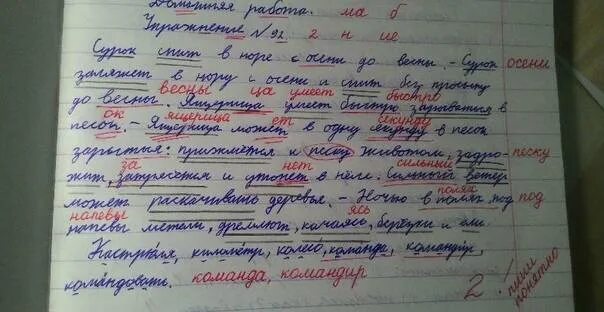 Домашняя работа. ма б
Упражнение №92 2 н ие
Сурок спит в норе с осени до весны. - Сурок осени
заляжет в нору с осени и спит без просыпу
весны ца умеет быстро
до весны. Ящерица умеет быстро зарываться в
ок ящерица ет секунду
песок. - Ящерица может в одну секунду в песок
зарыться: прижмётся к песку животом, задро- песку
за нет сильный
жит, затрясётся и утонет в нём. Сильный ветер
полях
может раскачивать деревья. - Ночью в полях, под под
напевы ясь
напевы метели, дремлют, качаясь, берёзки и ели.
Кастрюля, километр, колесо, команда, командир,
командовать. команда, командир
2 / пиши
понятно